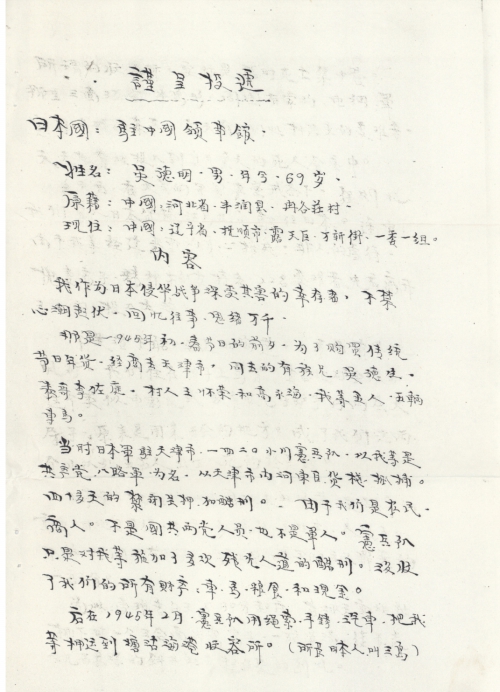 謹呈投遞
日本國：駐中國領事館.
姓名：吳德明.男.年令.69岁.
原籍：中國.河北省.丰润县.冉各莊村.
现住：中國.辽宁省.抚顺市.露天区.万新街.一委一组。
内容
我作为日本侵华战争深受其害的幸存者.不禁
心潮起伏.回忆往事.思绪万千.
那是一945年初.春节日的前夕.为了购买传统
节日年货.经商去天津市.同去的有族兄.吴德生.
表哥李佐庭.村人王怀荣.和高永海.我等五人.五辆
車馬。
当时日本軍駐天津市.一四二〇小川憲兵队.以我等是
共产党.八路軍.为名.从天津市内河東日货栈.抓捕。
四十多天的关押.加酷刑。.由于我们是农民.
商人。不是國共两党人员.也不是軍人。憲兵队
只是对我等施加了多次残无人道的酷刑。没收
了我们的所有财产.車.馬.粮食.和现金。
后在1945年2月.憲兵队用绳索.手铐.汽車.把我
等押运到塘沽海港收容所。（所長日本人.叫三島）